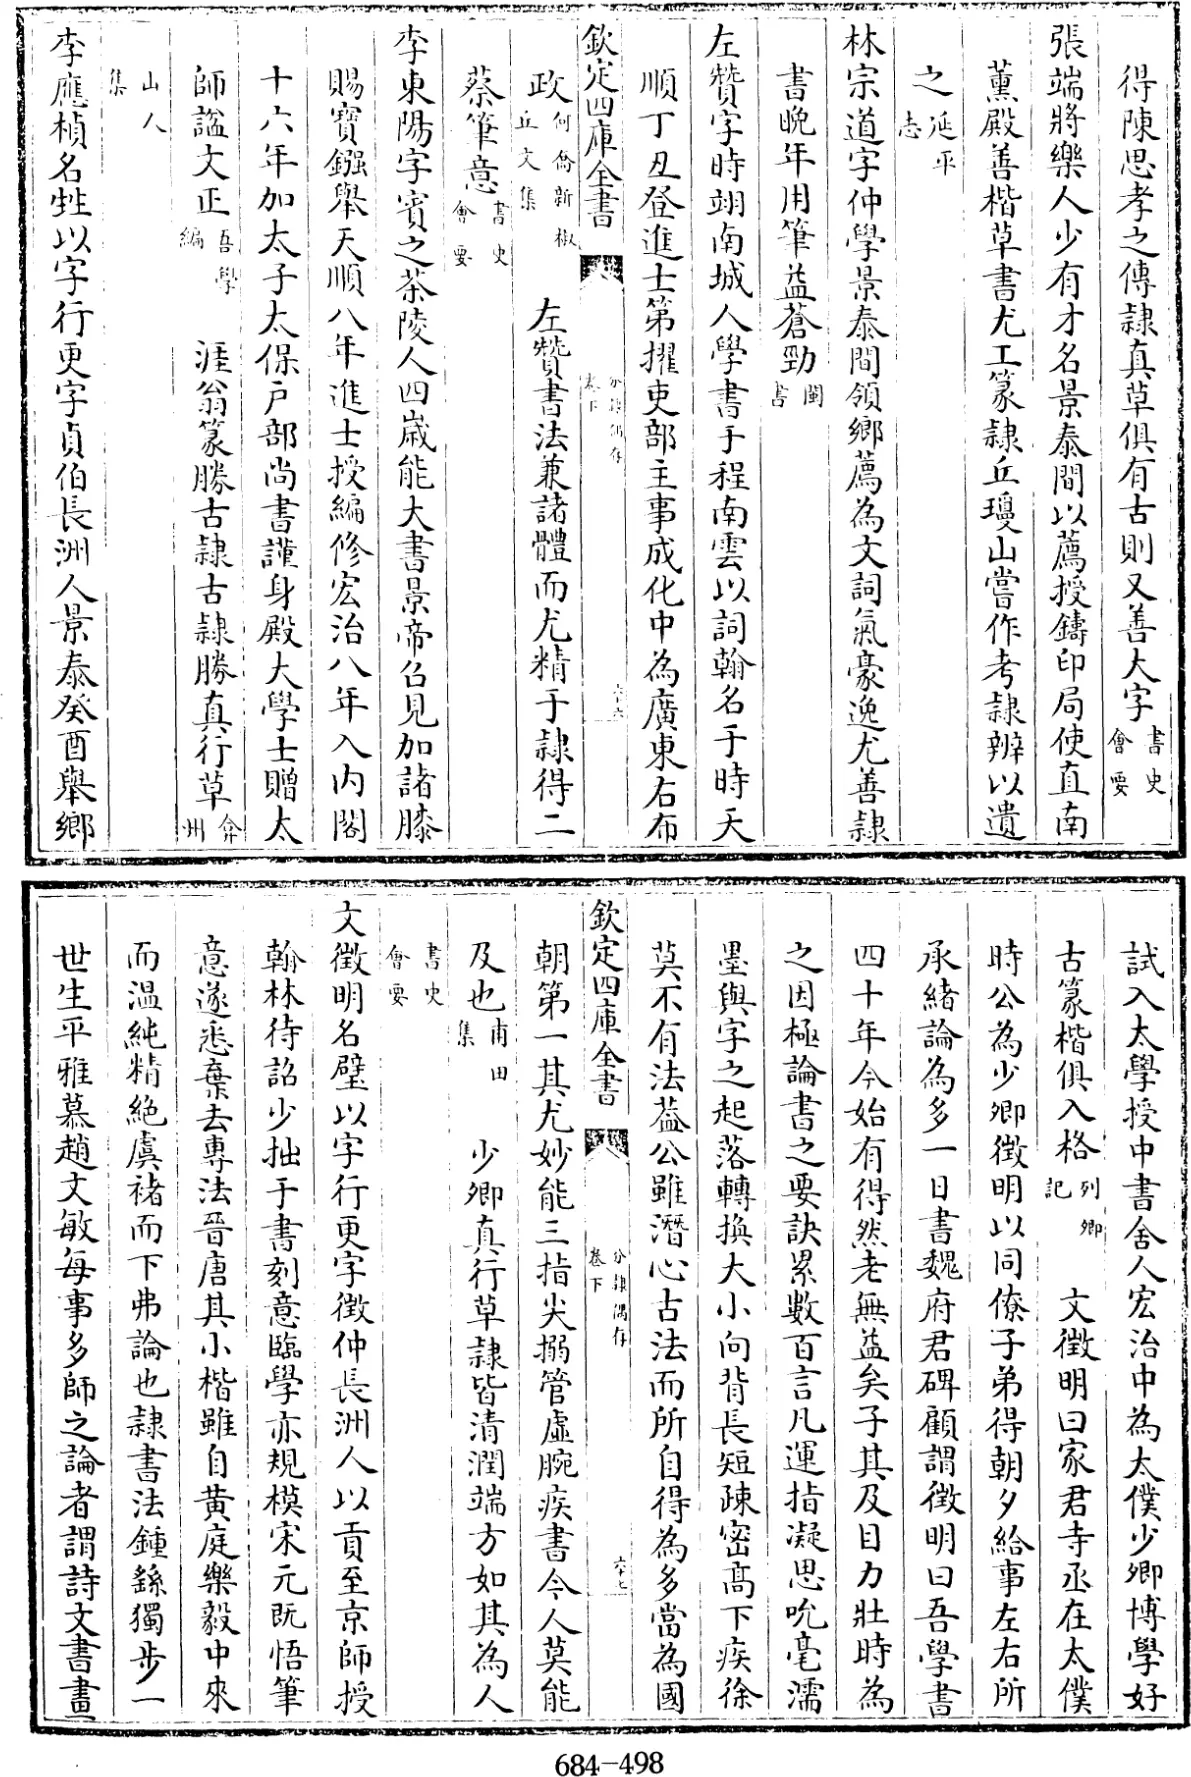 得陳思孝之傳隷真草俱有古則又善大字書史會要
張端將樂人少有才名景泰間以薦授鑄印局使直南
薰殿善楷草書尤工篆隷丘瓊山嘗作考隷辨以遺
之延平志
林宗道字仲學景泰間領鄉薦為文詞氣豪逸尤善隷
書晚年用筆益蒼勁閩書
左贊字時翊南城人學書于程南雲以詞翰名于時天
順丁丑登進士第擢吏部主事成化中為廣東右布
欽定四庫全書
分隷偶存
卷下
六十六
政何喬新椒丘文集 左贊書法兼諸體而尤精于隷得二
蔡筆意書史會要
李東陽字賓之茶陵人四歲能大書景帝召見加諸膝
賜寶鏹舉天順八年進士授編修宏治八年入内閣
十六年加太子太保戶部尚書謹身殿大學士贈太
師諡文正吾學編 涯翁篆勝古隷古隷勝真行草弇州
山人集
李應楨名甡以字行更字貞伯長洲人景泰癸酉舉鄉
試入太學授中書舍人宏治中為太僕少卿博學好
古篆楷俱入格列卿記 文徴明曰家君寺丞在太僕
時公為少卿徴明以同僚子弟得朝夕給事左右所
承緒論為多一日書魏府君碑顧謂徴明曰吾學書
四十年今始有得然老無益矣子其及目力壯時為
之因極論書之要訣累數百言凡運指凝思吮毫濡
墨與字之起落轉換大小向背長短疎密高下疾徐
莫不有法葢公雖潛心古法而所自得為多當為國
欽定四庫全書
分隷偶存
卷下
六十七
朝第一其尤妙能三指尖搦管虛腕疾書今人莫能
及也甫田集 少卿真行草隷皆清潤端方如其為人
書史會要
文徴明名璧以字行更字徴仲長洲人以貢至京師授
翰林待詔少拙于書刻意臨學亦規模宋元既悟筆
意遂悉棄去專法晉唐其小楷雖自黄庭樂毅中來
而温純精絶虞褚而下弗論也隷書法鍾繇獨步一
世生平雅慕趙文敏每事多師之論者謂詩文書畫
684-498